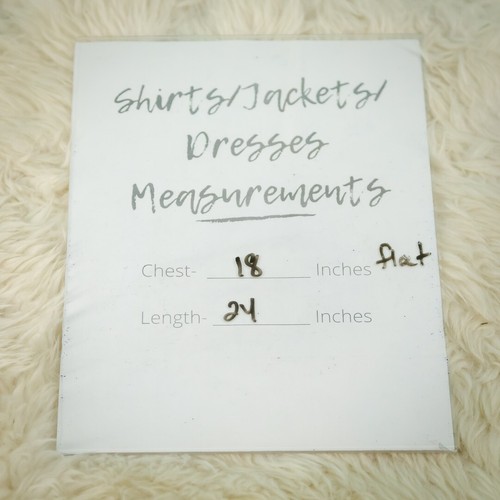 Shirts/Jackets/
Dresses
Measurements
Chest- 18 Inches flat
Length- 24 Inches